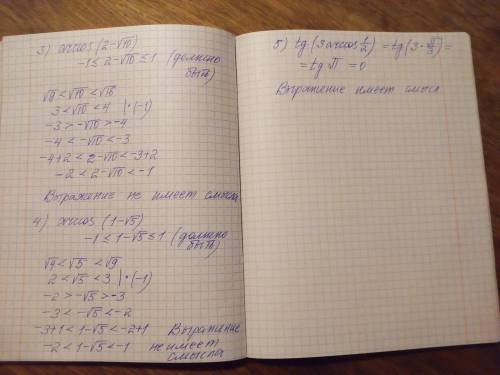 3) arccos (2-√10)
-1 ≤ 2-√10 ≤ 1 (должно
быть)
√9 < √10 < √16
3 < √10 < 4 |·(-1)
-3 > -√10 > -4
-4 < -√10 < -3
-4+2 < 2-√10 < -3+2
-2 < 2-√10 < -1
Выражение не имеет смысла
4) arccos (1-√5)
-1 ≤ 1-√5 ≤ 1 (должно
быть)
√4 < √5 < √9
2 < √5 < 3 |·(-1)
-2 > -√5 > -3
-3 < -√5 < -2
-3+1 < 1-√5 < -2+1 Выражение
-2 < 1-√5 < -1 не имеет
смысла
5) tg (3 arccos 1/2) = tg (3 · π/3) =
= tg π = 0
Выражение имеет смысл